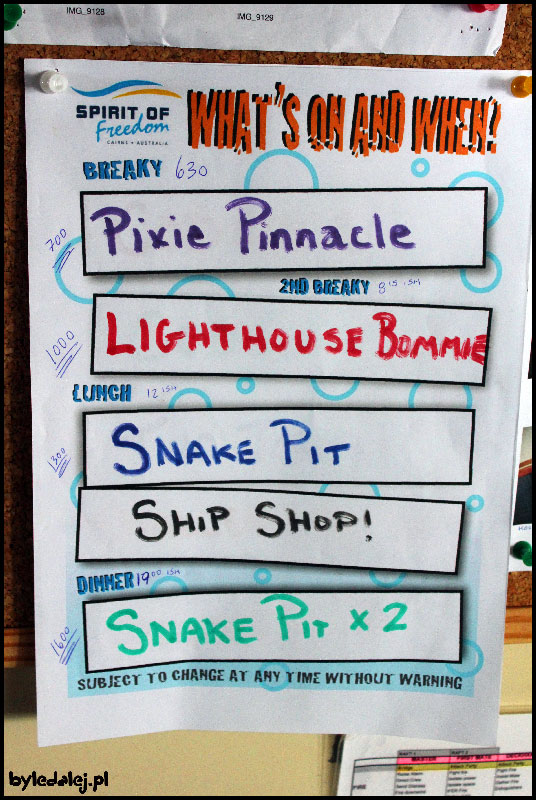 IMG_9128 IMG_9129
SPIRIT OF
Freedom
CAIRNS • AUSTRALIA
WHAT'S ON AND WHEN?
BREAKY 630
700 Pixie Pinnacle
2ND BREAKY 8 15 ISH
1000 LIGHTHOUSE BOMMIE
LUNCH 12 ISH
1300 SNAKE PIT
SHIP SHOP!
DINNER 19 00 ISH
1600 SNAKE PIT x 2
SUBJECT TO CHANGE AT ANY TIME WITHOUT WARNING
RAFT 1 RAFT 2
MASTER FIRST MATE
FIRE
byledalej.pl